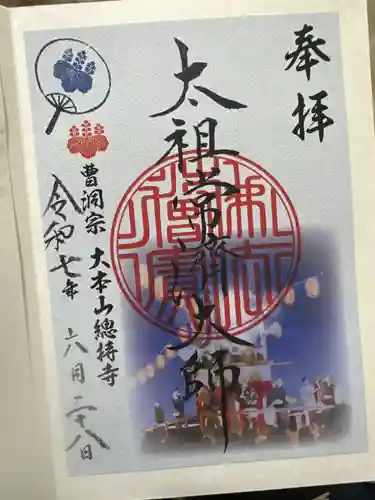 奉拝
太祖常濟大師
曹洞宗 大本山總持寺
令和七年 六月二十八日